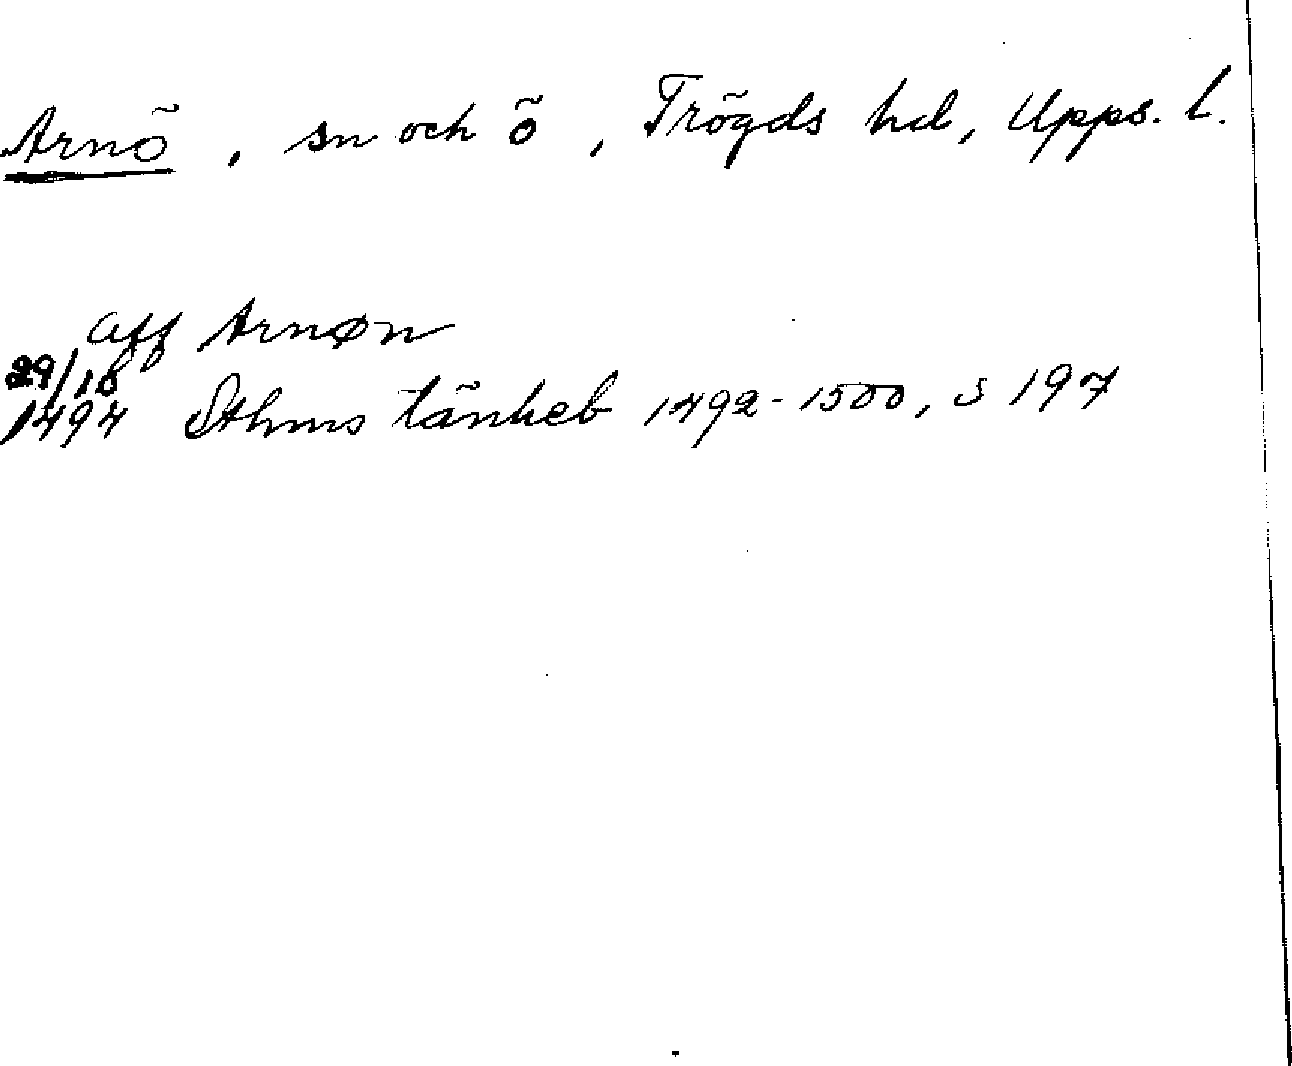 Arnö, sn och ö, Trögds hd, Upps. l.
aff Arnøn
29/10
1494 Sthms tänkeb 1492-1500, s 197